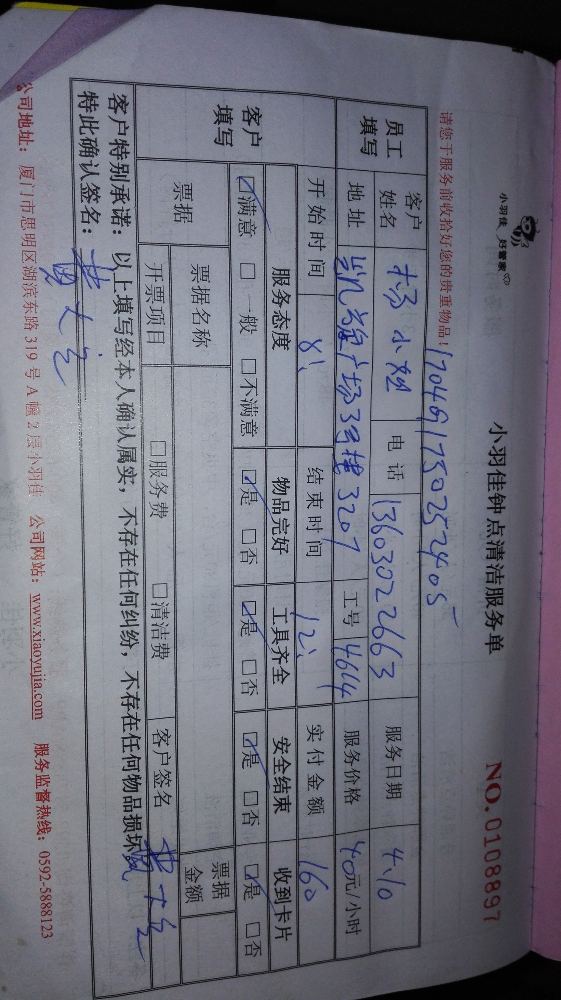 小羽佳 好管家
小羽佳钟点清洁服务单
NO.0108897
请您于服务前收拾好您的贵重物品!
员工填写
客户姓名 杨小姐 电话 13603022663 服务日期 4.10
地址 3号楼3207 工号 4614 服务价格 40元/小时
开始时间 8: 结束时间 12: 实付金额 160
客户填写
服务态度 物品完好 工具齐全 安全结束 收到卡片
☑满意 □一般 □不满意 ☑是 □否 ☑是 □否 ☑是 □否 ☑是 □否
票据 票据名称 票据金额
开票项目 □服务费 □清洁费 客户签名
客户特别承诺:以上填写经本人确认属实,不存在任何纠纷,不存在任何物品损坏
特此确认签名:
公司地址:厦门市思明区湖滨东路319号A幢2层小羽佳 公司网站:www.xiaoyujia.com 服务监督热线:0592-5888123